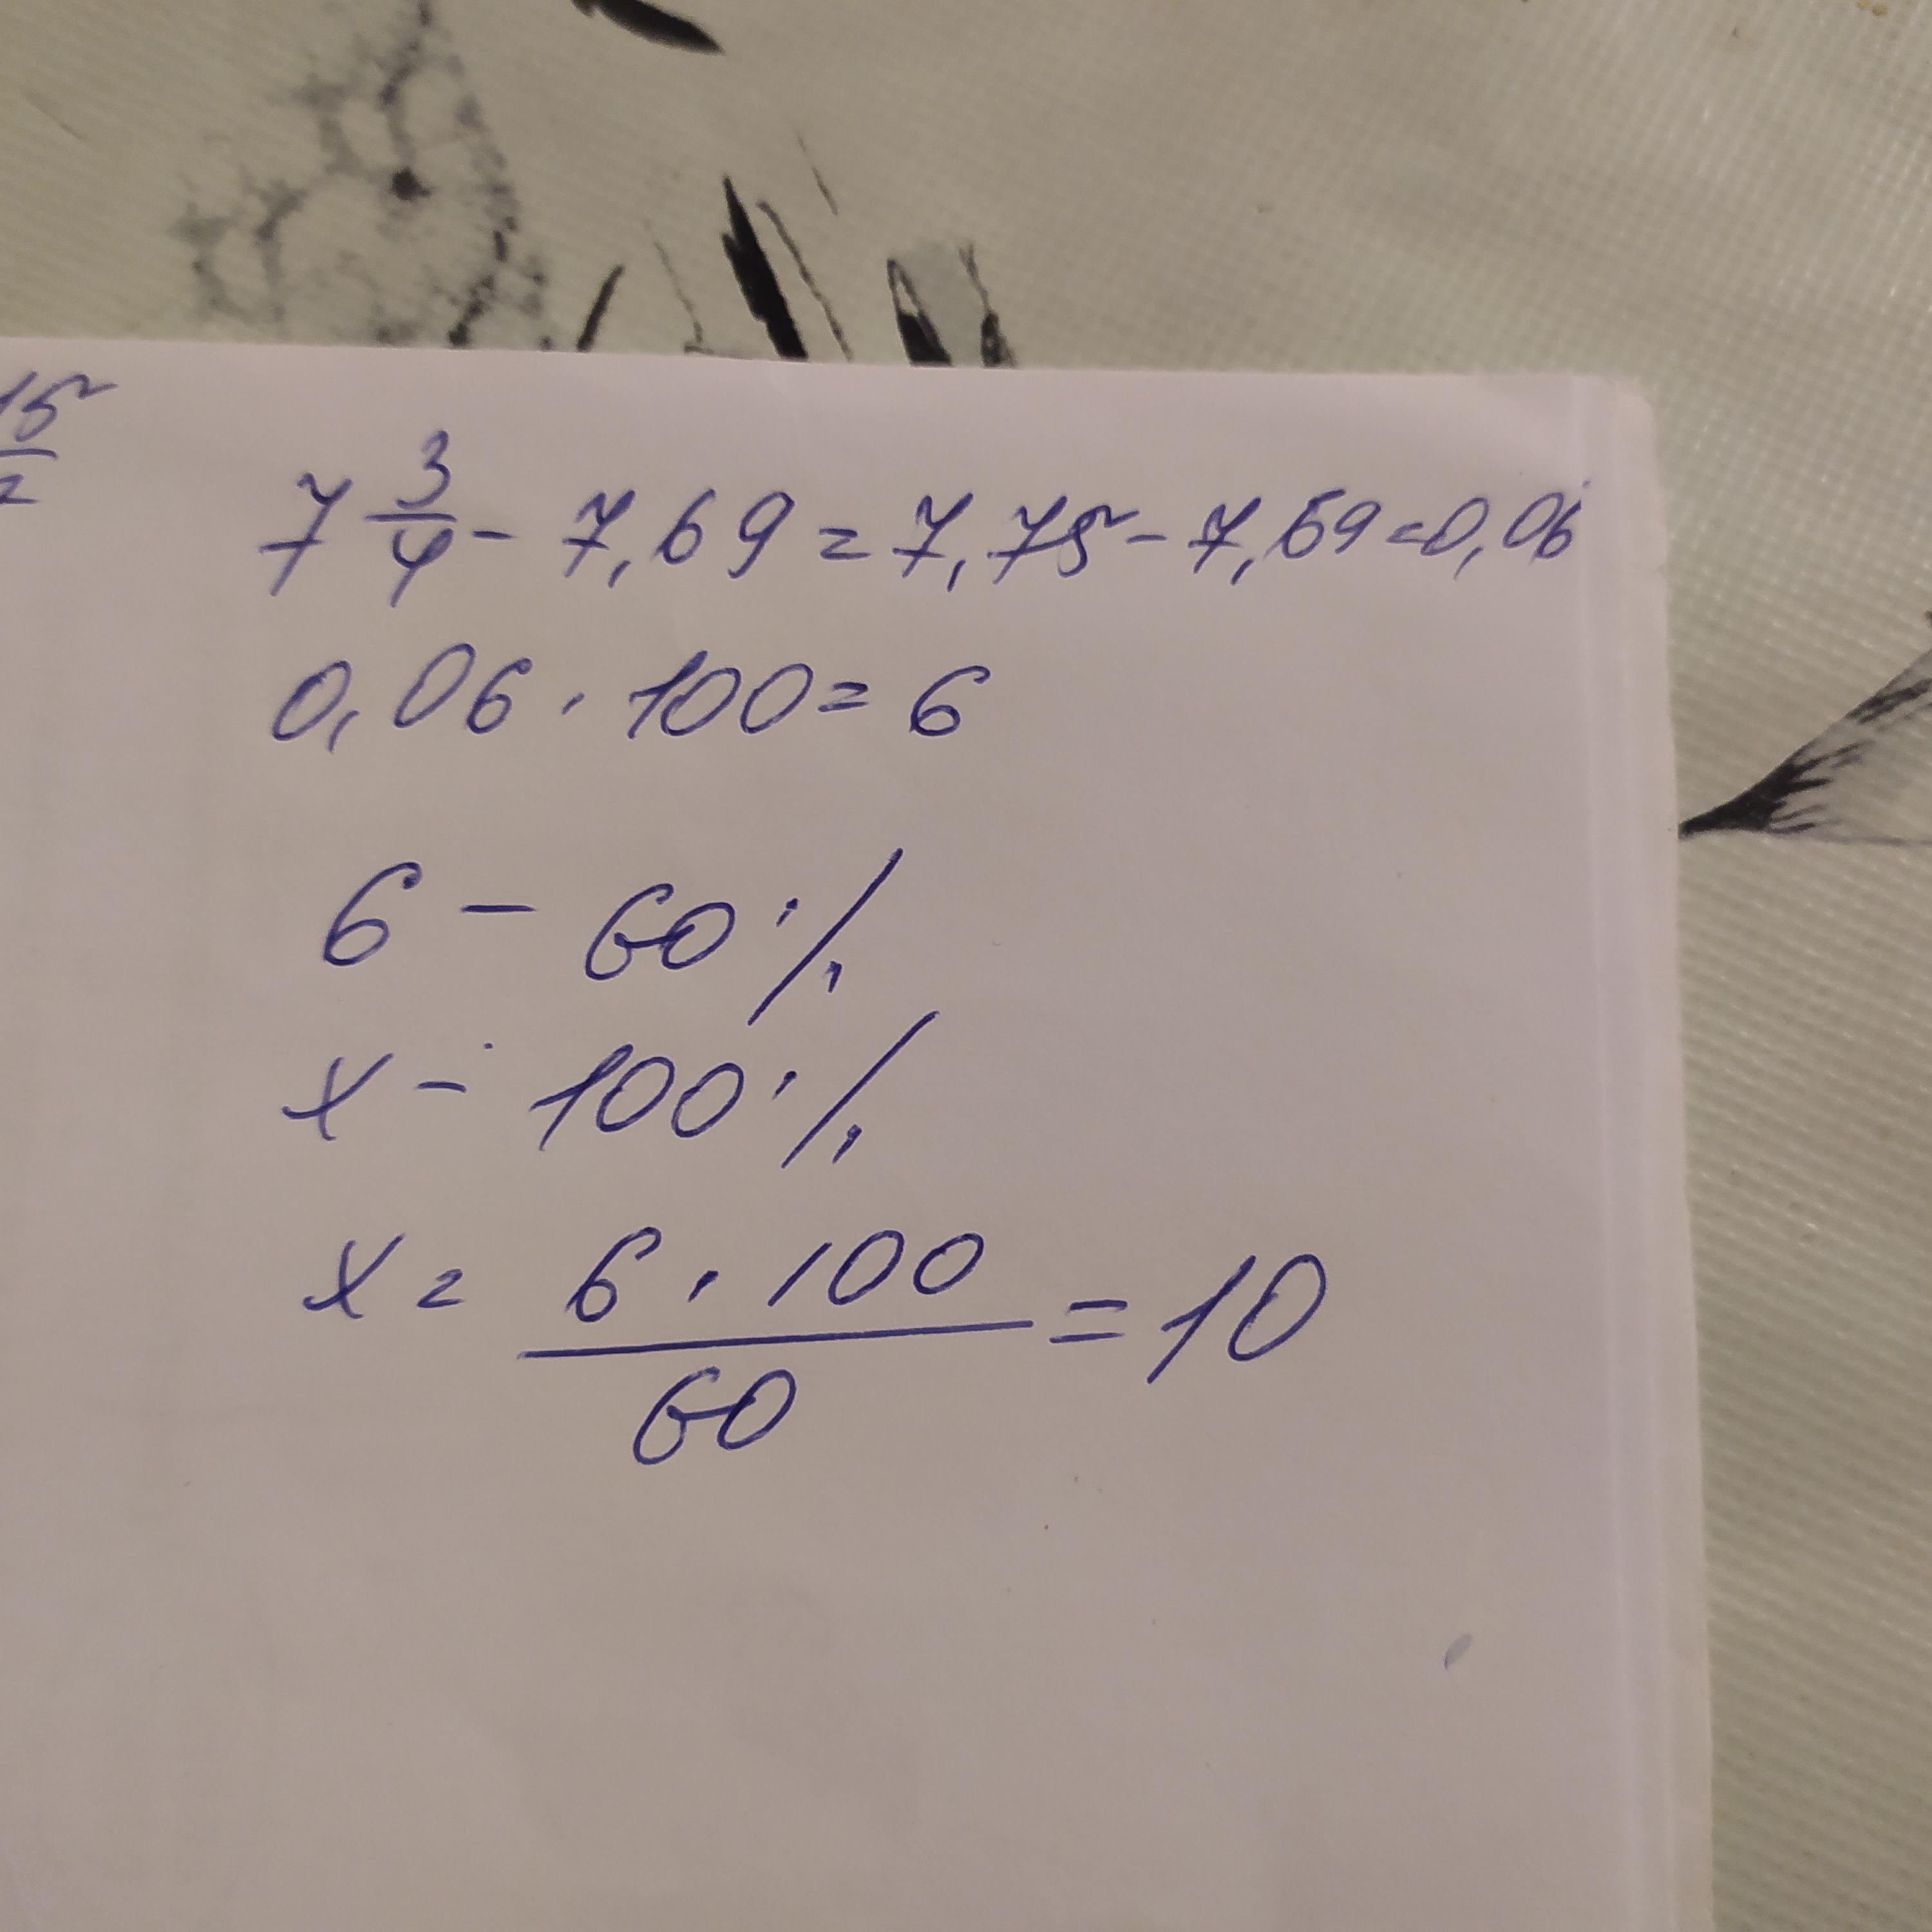 15/2
7 3/4 - 7,69 = 7,75 - 7,69 = 0,06
0,06 · 100 = 6
6 - 60%
x - 100%
x = 6 · 100/60 = 10